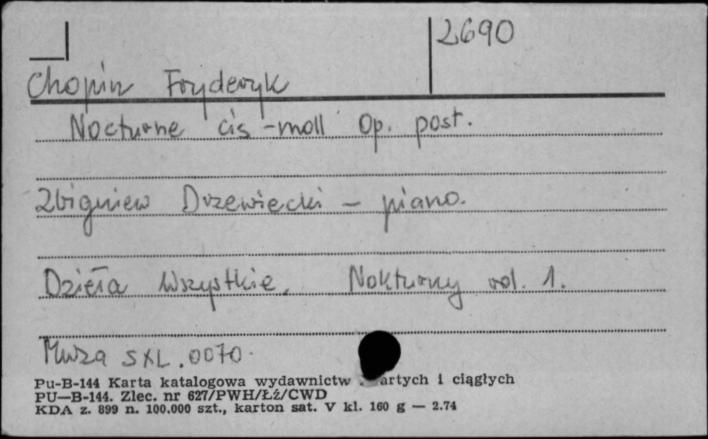 2690
Chopin Fryderyk
Nocturne cis-moll Op. post.
Zbigniew Drzewiecki - piano.
Dzieła Wszystkie. Nokturny vol. 1.
Muza SXL.0070.
Pu-B-144 Karta katalogowa wydawnictw artych i ciągłych
PU—B-144. Zlec. nr 627/PWH/Łż/CWD
KDA z. 899 n. 100.000 szt., karton sat. V kl. 160 g — 2.74